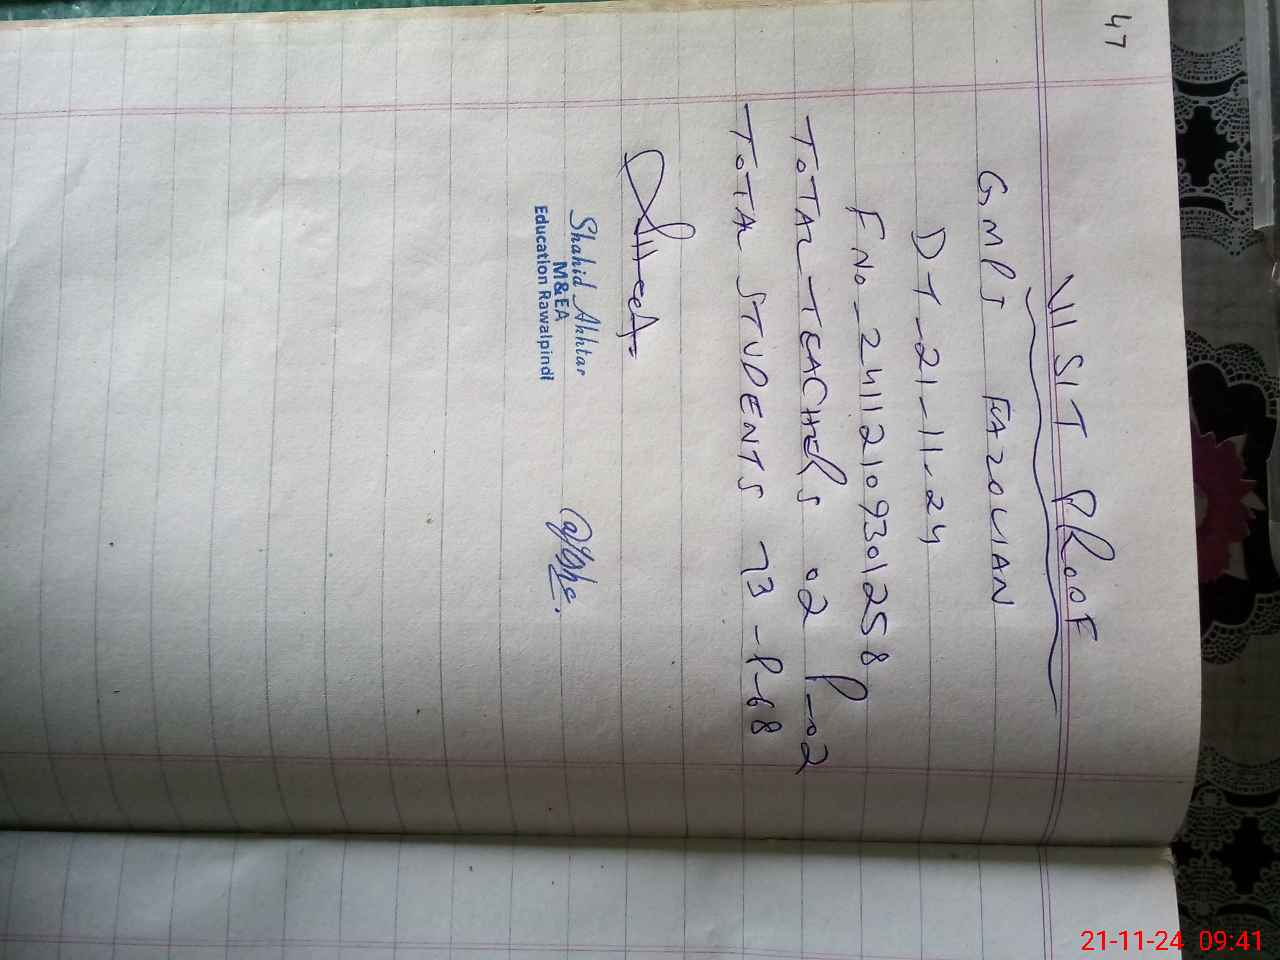 47
VISIT PROOF
GMPS FAZOLIAN
DT-21-11-24
FNo-24112109301258
TOTAL TEACHERS 02 P-02
TOTAL STUDENTS 73-P-68
Shahid Akhtar
M&EA
Education Rawalpindi
21-11-24 09:41